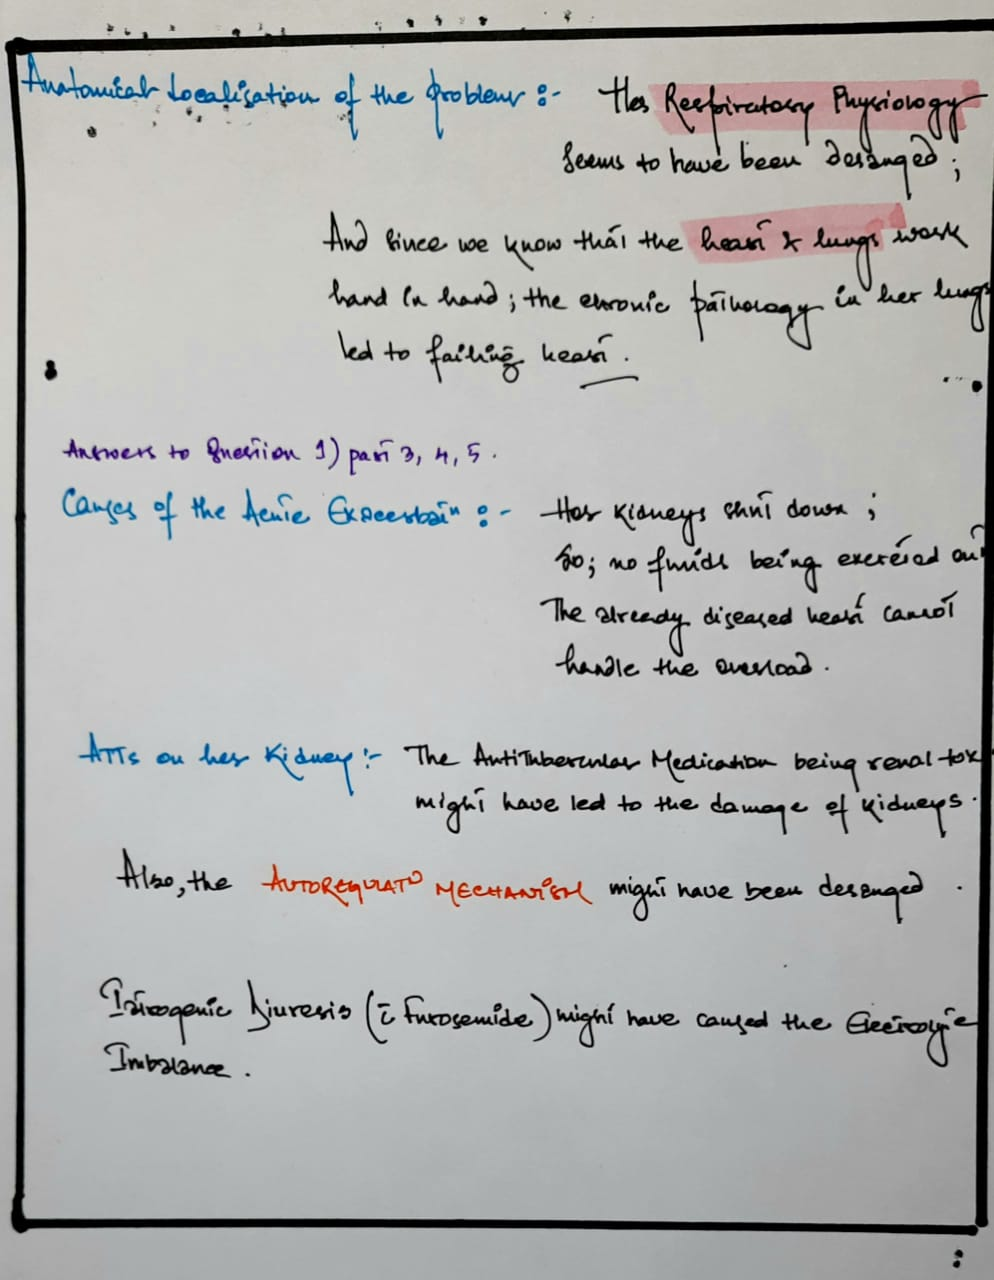 Anatomical Localisation of the problem :- Her Respiratory Physiology
seems to have been deranged ;
And since we know that the heart & lungs work
hand in hand ; the chronic pathology in her lungs
led to failing heart .
Answers to Question 1) part 3, 4, 5 .
Causes of the Acute Exacerbain :- Her Kidneys shut down ;
So ; no fluids being excreted out
The already diseased heart cannot
handle the overload .
ATTs on her Kidney :- The AntiTubercular Medication being renal tox
might have led to the damage of kidneys .
Also, the AUTOREGULATO MECHANISM might have been deranged .
Iatrogenic Diuresis (c̄ Furosemide) might have caused the Electrolyte
Imbalance .